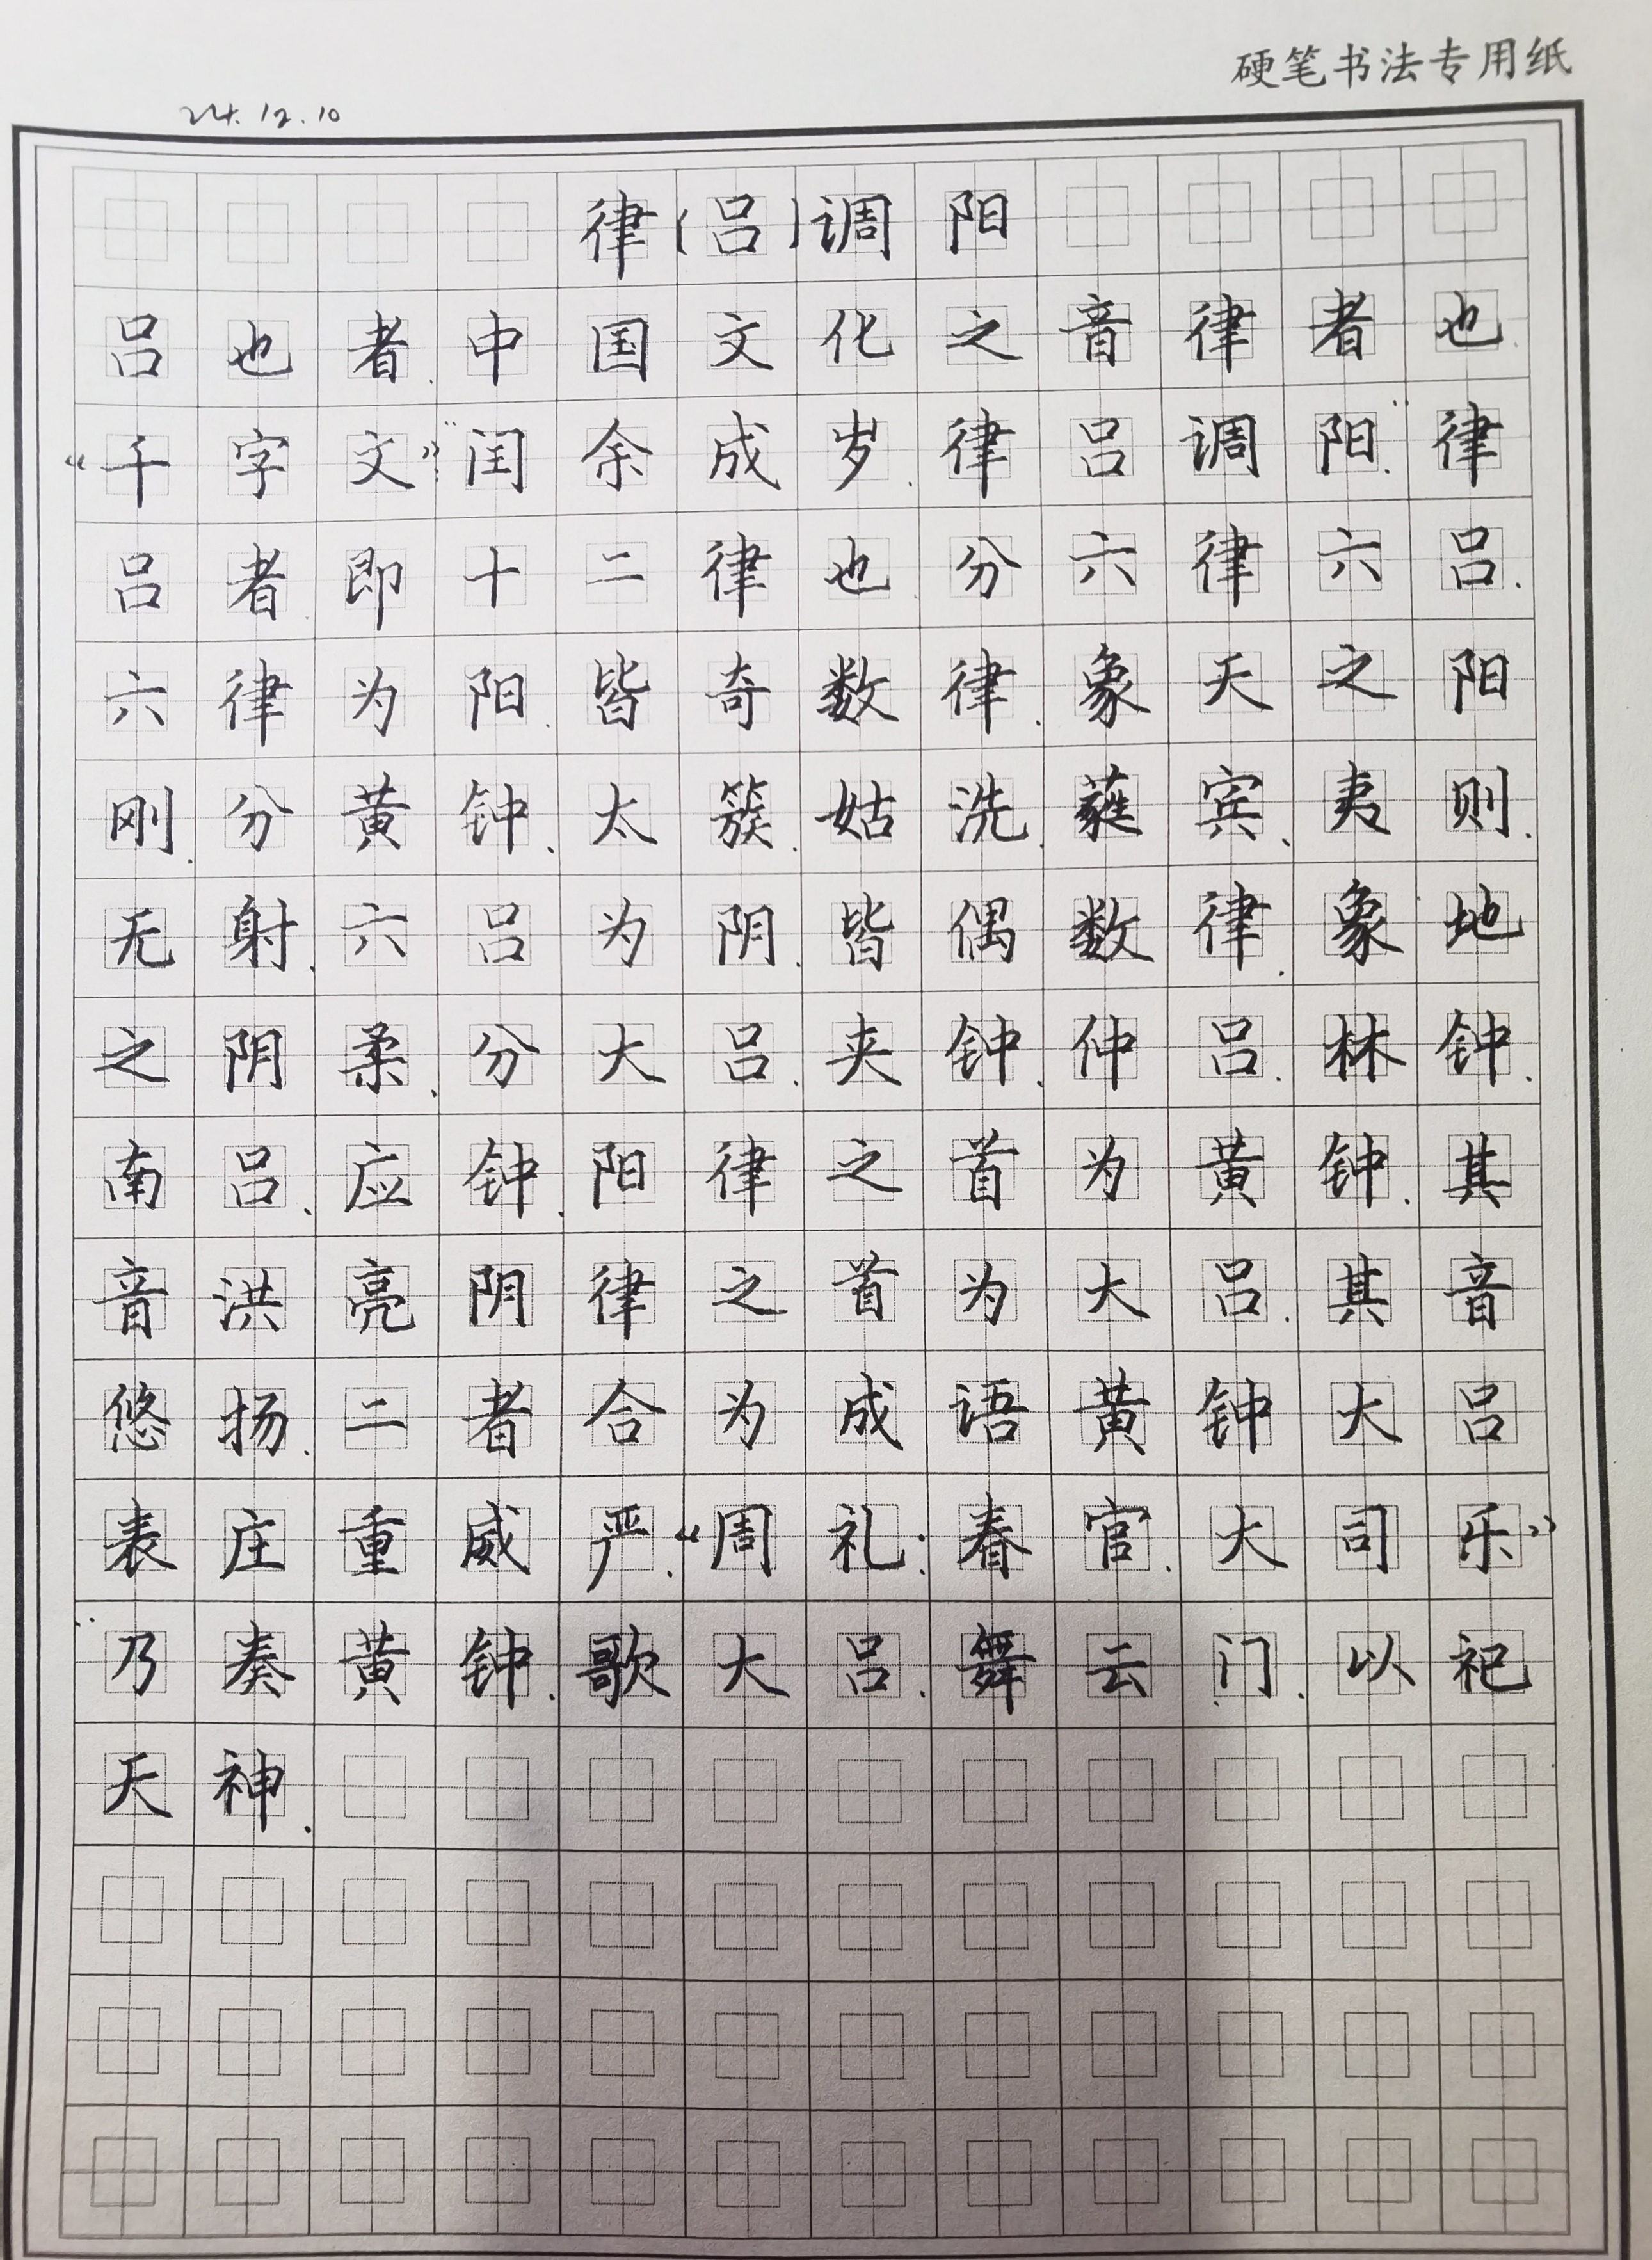 硬笔书法专用纸
24.12.10
律(吕)调阳
吕也者.中国文化之音律者也
“千字文”:“闰余成岁.律吕调阳.”律
吕者即十二律也.分六律六吕.
六律为阳.皆奇数律.象天之阳
刚.分黄钟、太簇.姑洗.蕤宾、夷则.
无射.六吕为阴.皆偶数律.象地
之阴柔.分大吕.夹钟.仲吕.林钟.
南吕、应钟.阳律之首为黄钟.其
音洪亮阴律之首为大吕.其音
悠扬.二者合为成语黄钟大吕
表庄重威严.“周礼:春官.大司乐”
“乃奏黄钟.歌大吕.舞云门.以祀
天神.